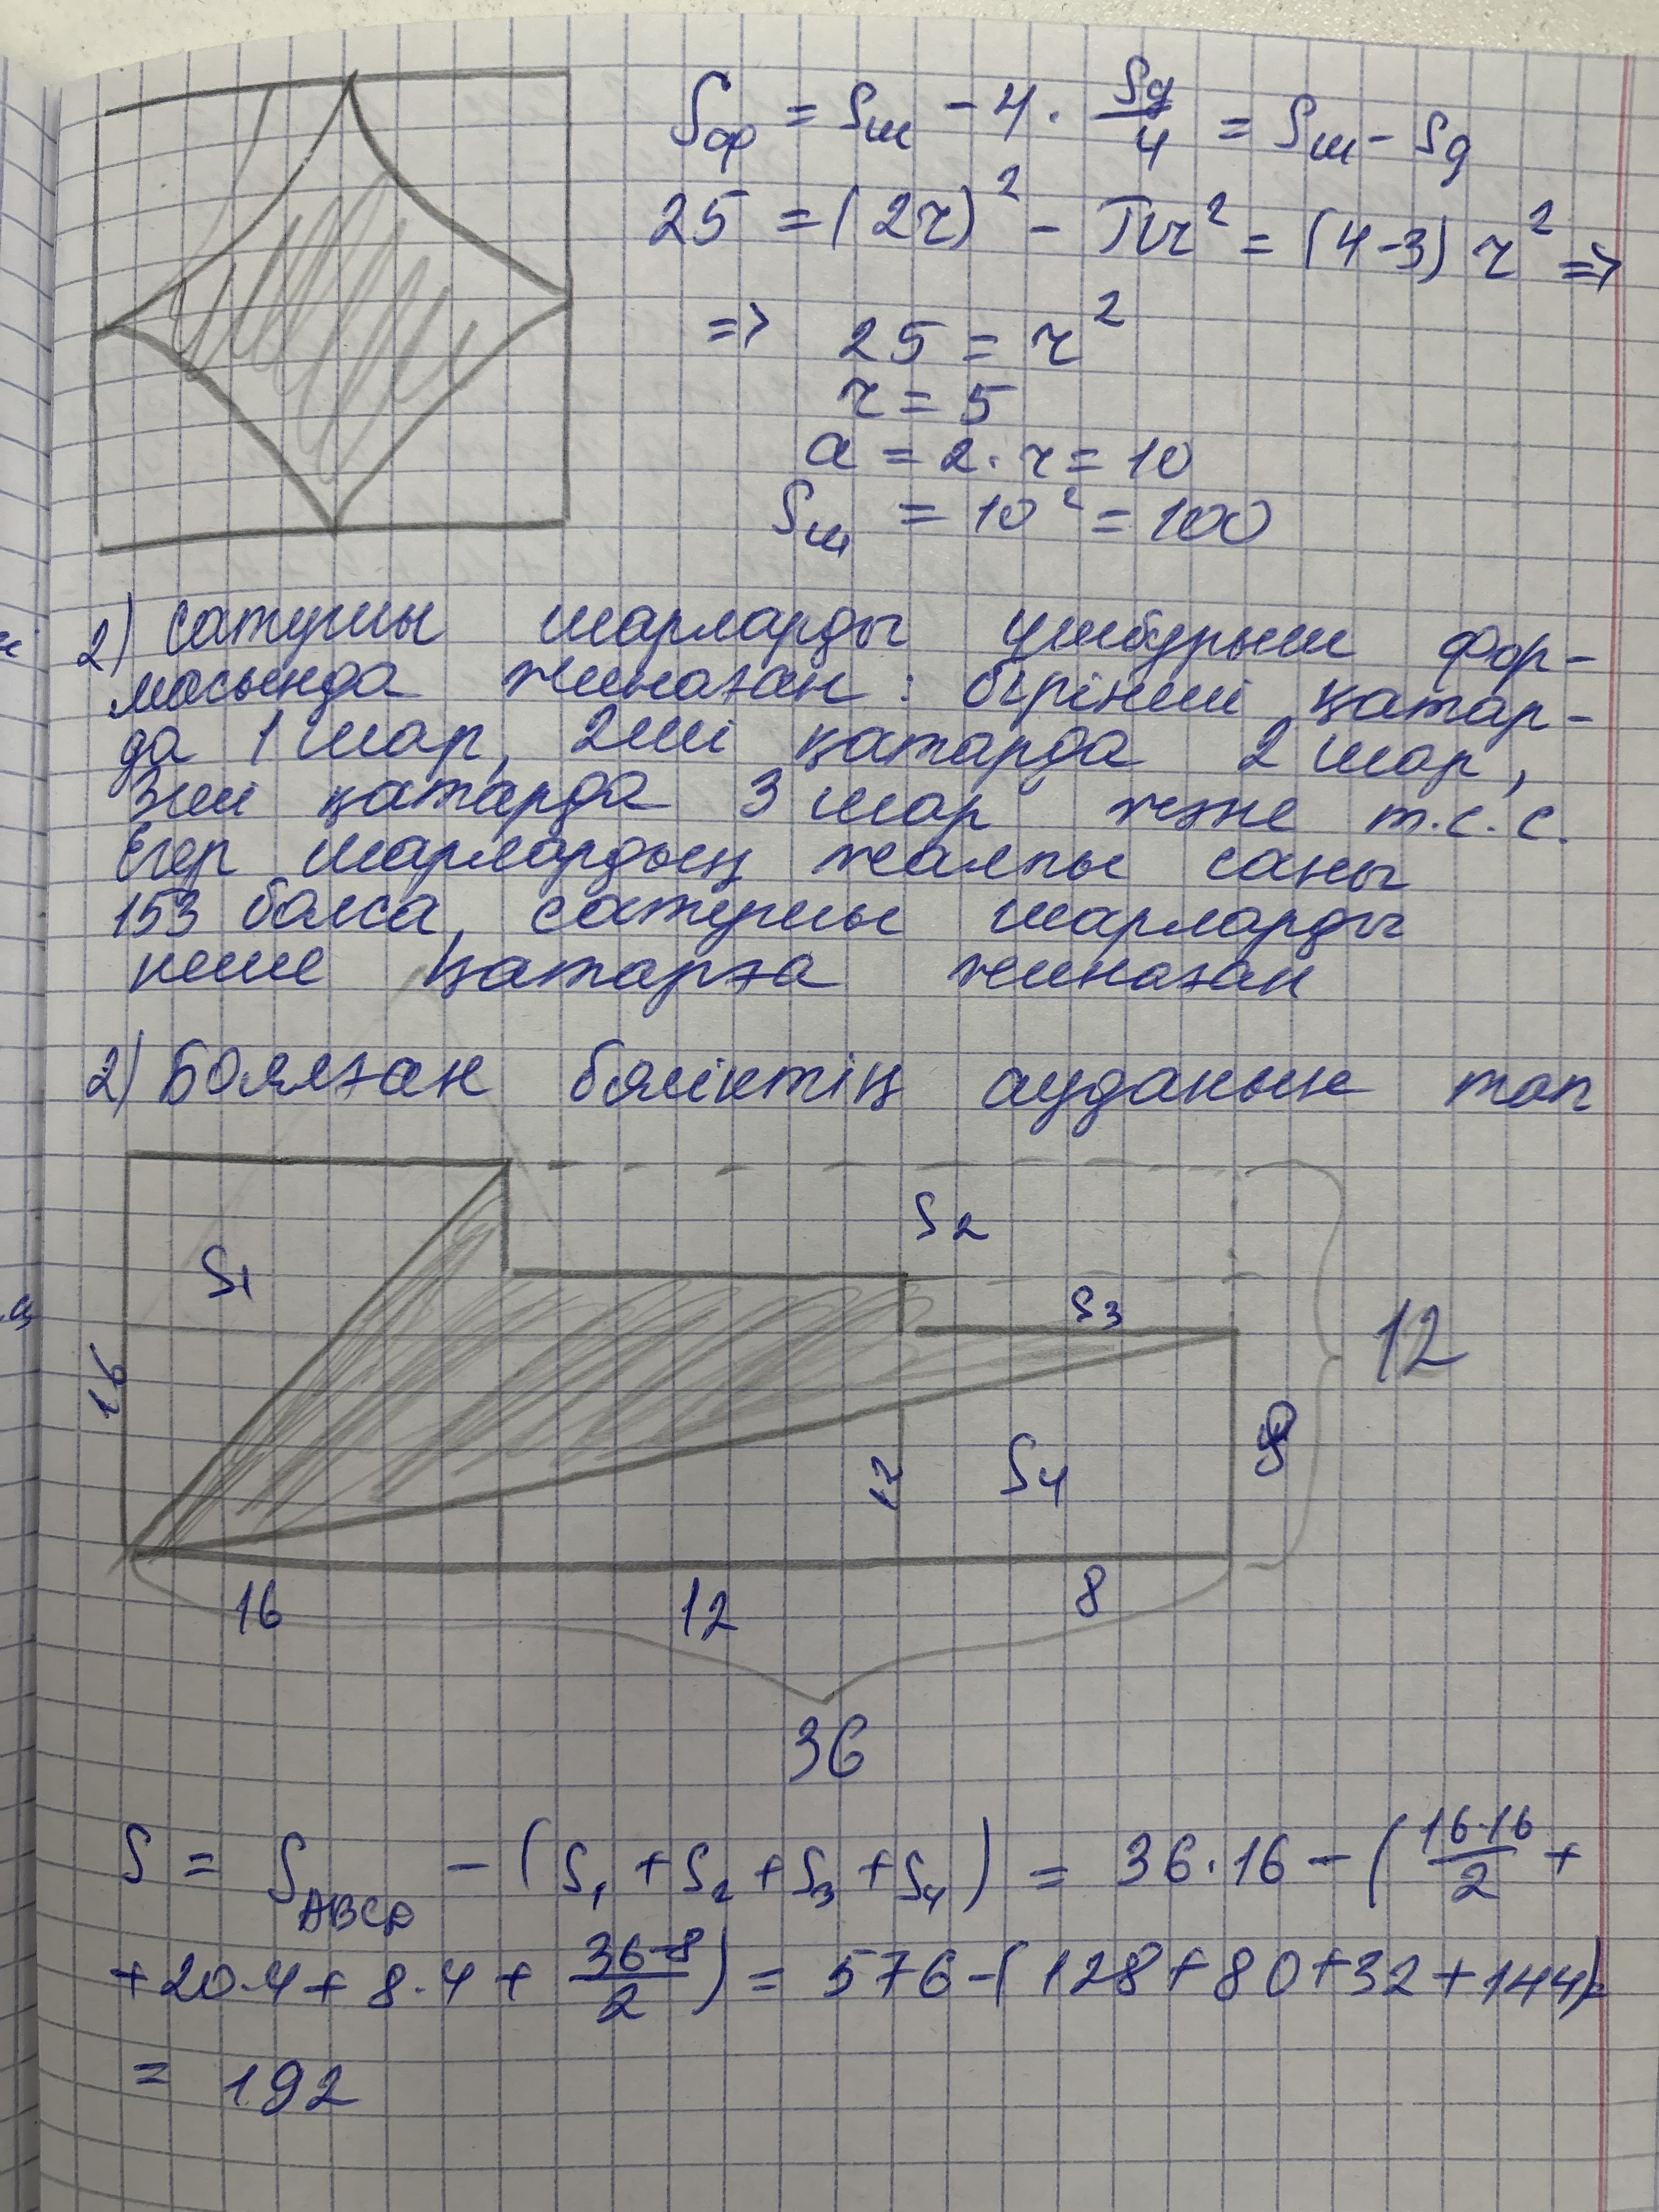 Sф = Sш - 4 · Sд/4 = Sш - Sд
25 = (2r)² - πr² = (4-3) r² =>
=> 25 = r²
r = 5
a = 2 · r = 10
Sш = 10² = 100
2) Сатушы шарларды үшбұрыш фор-
масында жинаған : бірінші қатар-
да 1 шар, 2ші қатарда 2 шар,
3ші қатарда 3 шар және т.с.с.
Егер шарлардың жалпы саны
153 болса, сатушы шарларды
неше қатарға жинаған
2) Боялған бөліктің ауданын тап
S1
S2
S3
16
12
12
S4
8
16
12
8
36
S = SABCD - (S1 + S2 + S3 + S4) = 36·16 - (16·16/2 +
+ 20·4 + 8·4 + 36·8/2) = 576 - (128 + 80 + 32 + 144) =
= 192